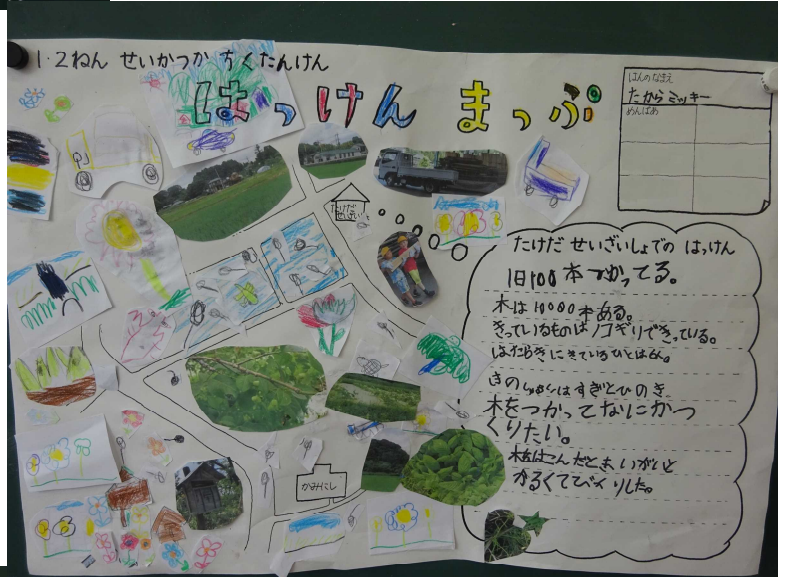 1・2ねん せいかつか ちくたんけん
はっけん まっぷ
はんのなまえ
たからミッキー
めんばあ
たけだ せいざいしょ
たけだ せいざいしょでの はっけん
1日100本つかってる。
木は10000本ある。
きっているものはノコギリできっている。
はたらきにきているひとは6人
きのしゅるいはすぎとひのき
木をつかってなにかつ
くりたい。
木をはこんだとき、いがいと
かるくてびっくりした。
かみにし